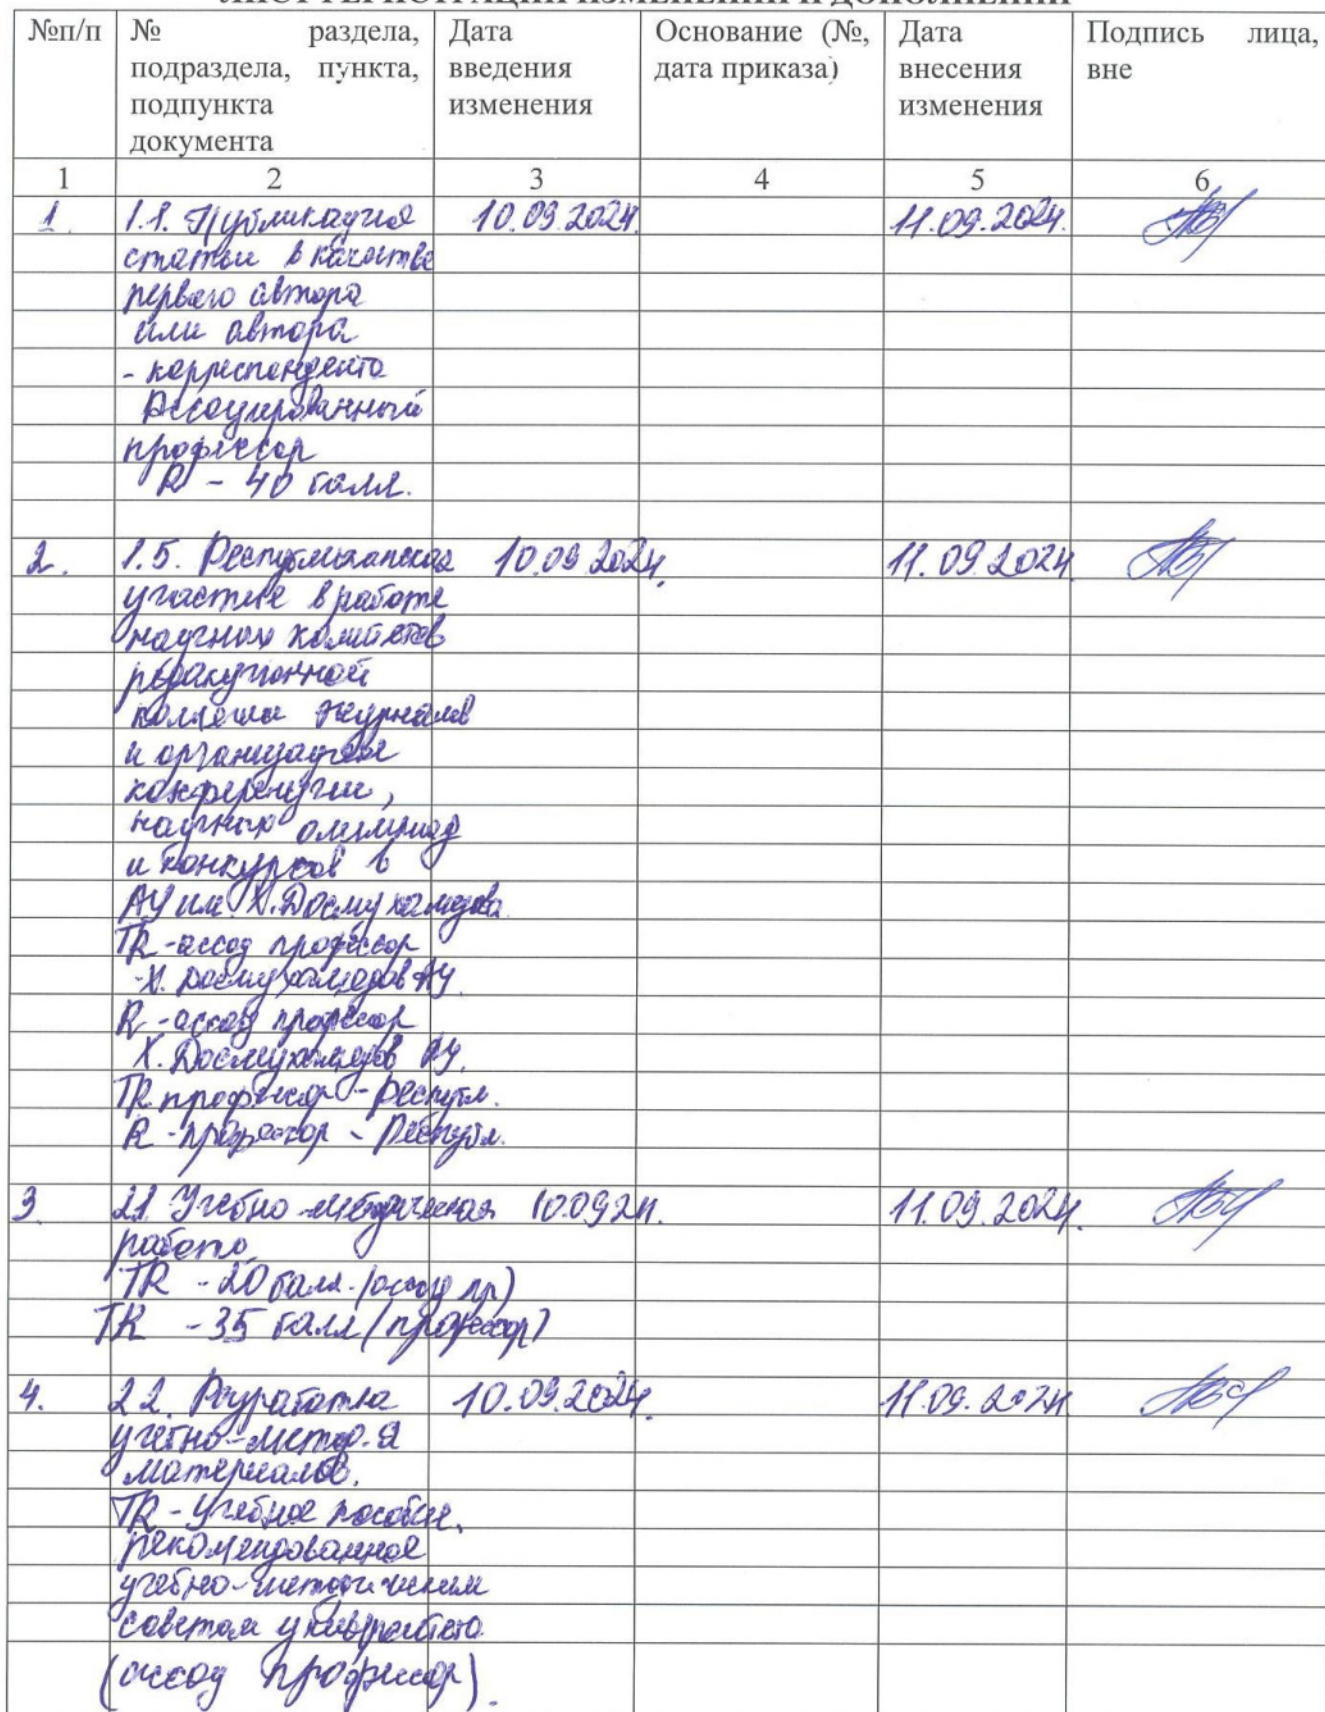 ЛИСТ РЕГИСТРАЦИИ ИЗМЕНЕНИЙ И ДОПОЛНЕНИЙ
№п/п № раздела, подраздела, пункта, подпункта документа Дата введения изменения Основание (№, дата приказа) Дата внесения изменения Подпись лица, вне
1 2 3 4 5 6
1. 1.1. Публикация 10.09.2024. 11.09.2024.
статьи в качестве
первого автора
или автора
- корреспондента
Ассоциированный
профессор
R - 40 балл.
2. 1.5. Республиканская 10.09.2024. 11.09.2024
участие в работе
научных комитетов
редакционной
коллегии журналов
и организации
конференции,
научных олимпиад
и конкурсов в
АУ им. Х.Досмухамедова
TR - ассоц профессор
- Х. Досмухамедов АУ.
R - ассоц профессор
Х. Досмухамедов АУ.
TR профессор - Республ.
R - профессор - Республ.
3. 2.1 Учебно-методическая 10.09 24. 11.09.2024.
работа
TR - 20 балл. (ассоц пр)
TR - 35 балл (профессор)
4. 2.2. Разработка 10.09.2024. 11.09.2024.
учебно-метод.
материалов.
TR - Учебное пособие,
рекомендованное
учебно-методическим
советом университета
(ассоц профессор).